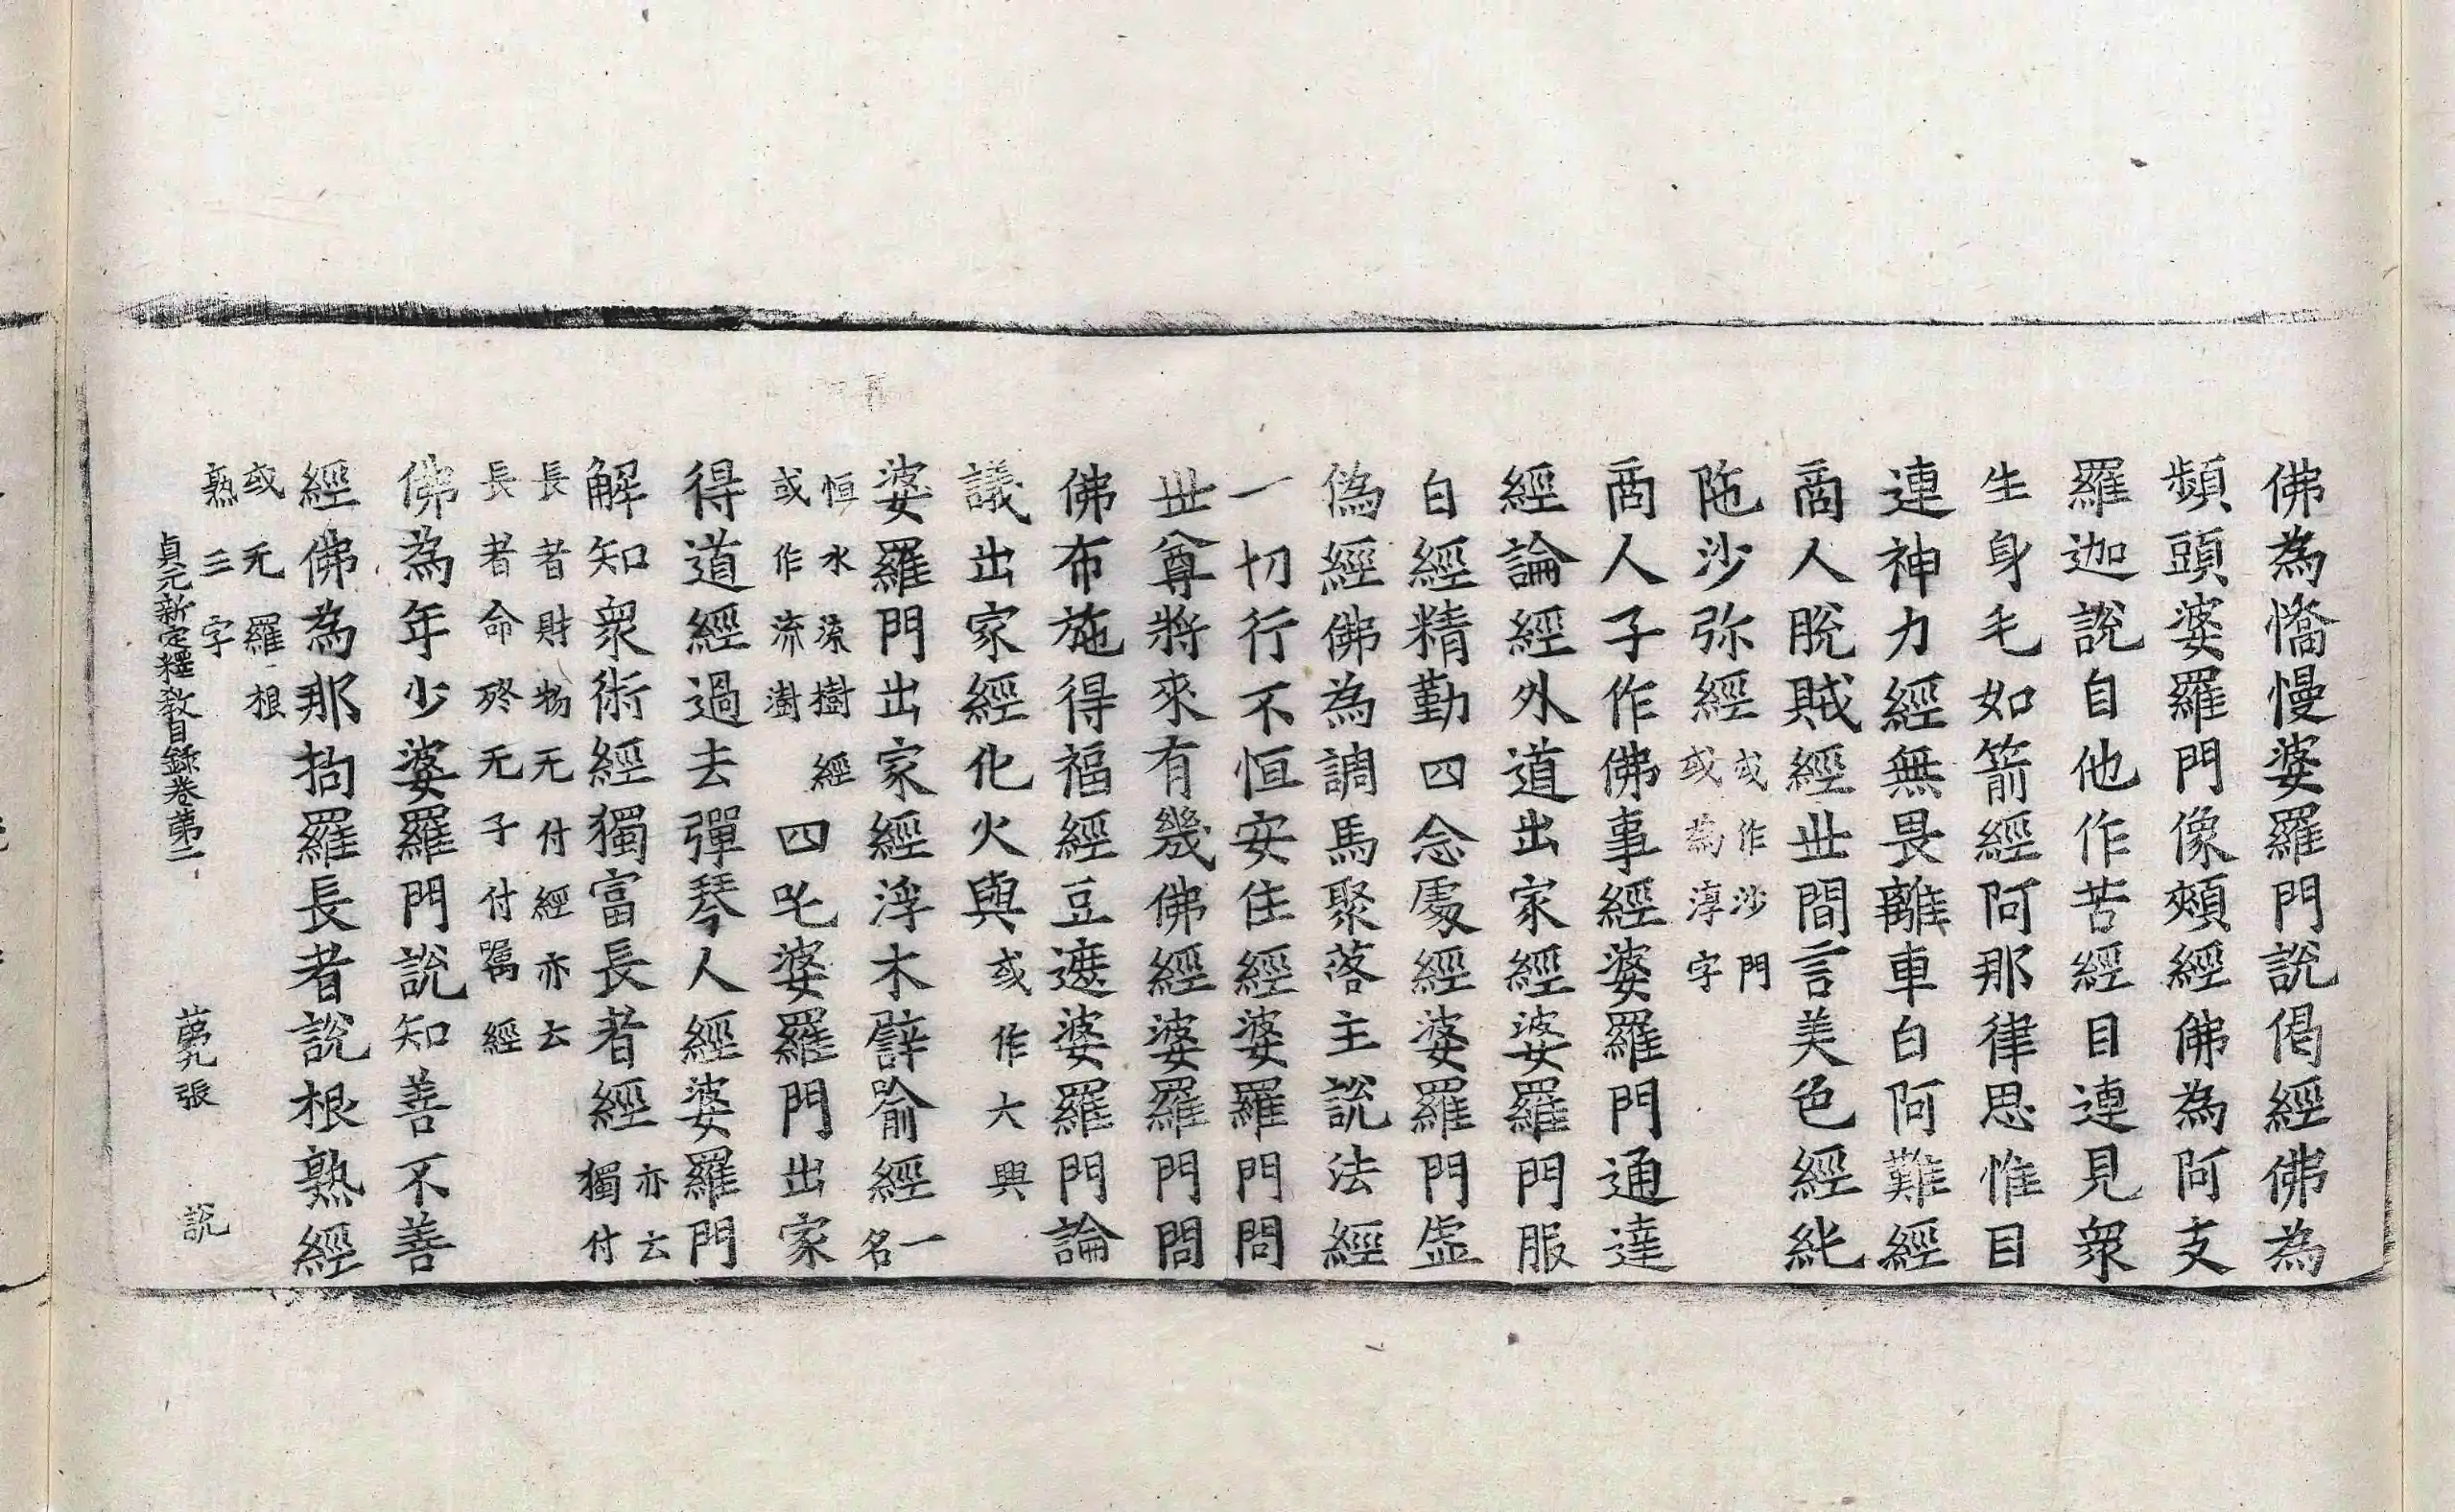 佛為憍慢婆羅門說偈經佛為
頻頭婆羅門像頰經佛為阿支
羅迦說自他作苦經目連見衆
生身毛如箭經阿那律思惟目
連神力經無畏離車白阿難經
商人脫賊經世間言美色經紕
陁沙弥經
或作沙門
或為淳字
商人子作佛事經婆羅門通達
經論經外道出家經婆羅門服
白經精勤四念處經婆羅門虛
偽經佛為調馬聚落主說法經
一切行不恒安住經婆羅門問
世尊將來有幾佛經婆羅門問
佛布施得福經豆遮婆羅門論
議出家經化火與
或作大興
婆羅門出家經浮木譬喻經
一名
恒水流樹經
或作流澍
四吒婆羅門出家
得道經過去彈琴人經婆羅門
解知衆術經獨富長者經
亦云獨付
長者財物无付經亦云
長者命終无子付囑經
佛為年少婆羅門說知善不善
經佛為那拘羅長者說根熟經
或无羅根
熟三字
貞元新定釋教目錄卷第二 第九張 說